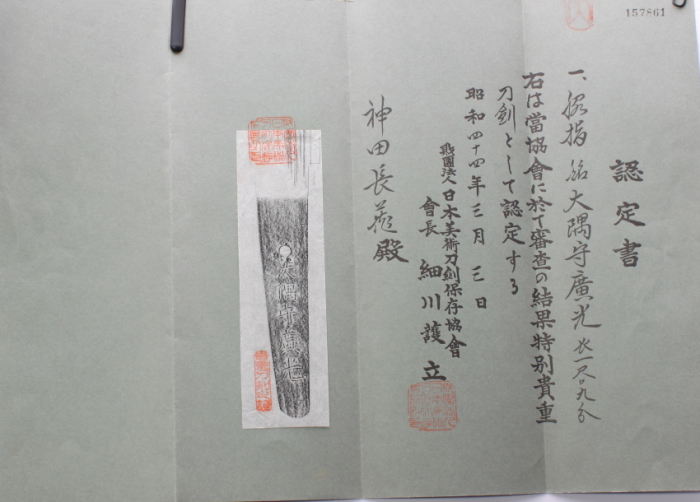 157861
認定書
一、脇指 銘 大隅守廣光 長一尺九分
右は當協會に於て審査の結果特別貴重
刀剣として認定する
昭和四十四年三月三日
財團法人日本美術刀剣保存協會
會長 細川護立
神田長 殿
大隅守廣光